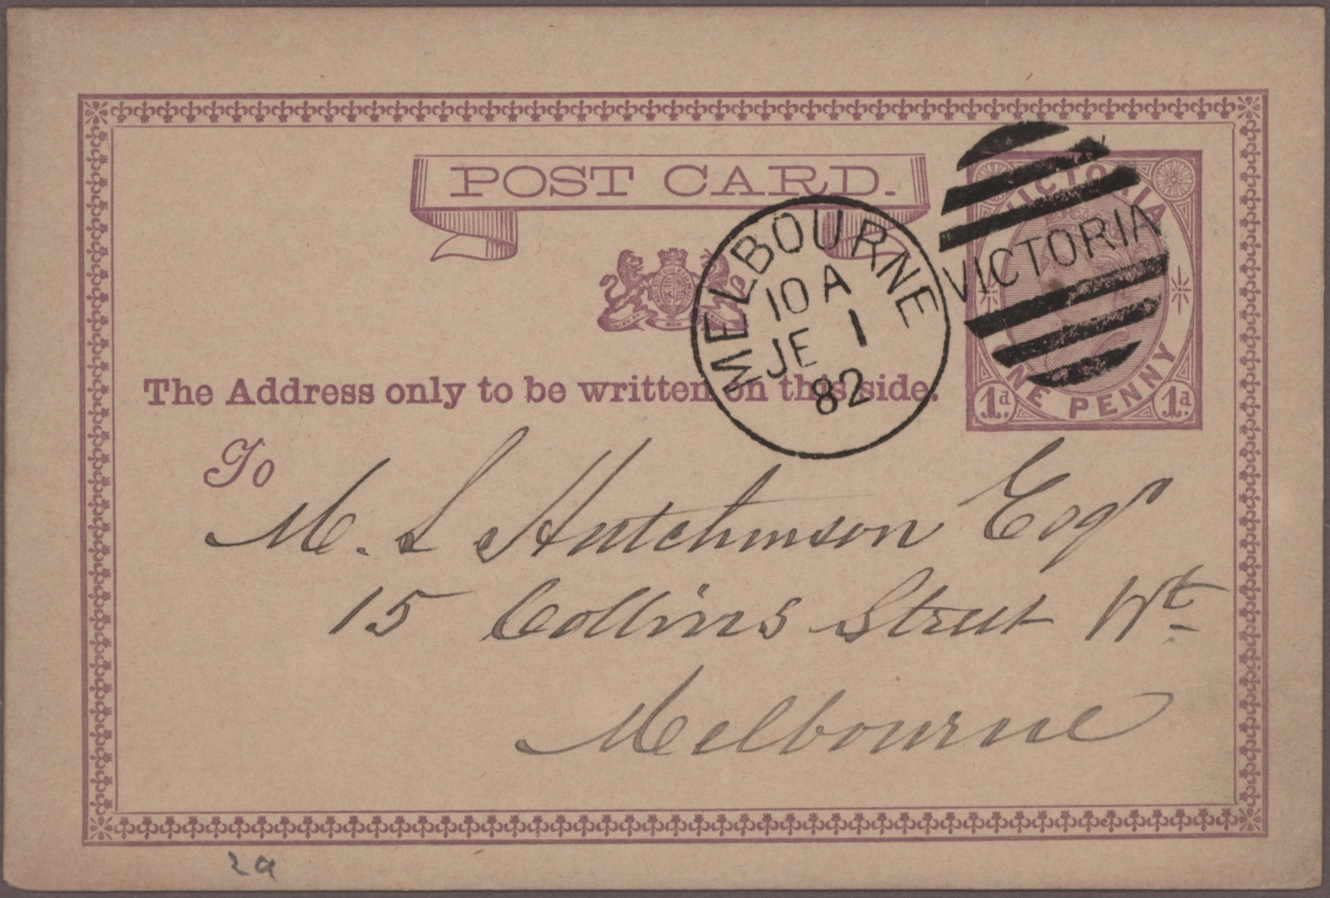 POST CARD.
VICTORIA
ONE PENNY
1d 1d
VICTORIA
MELBOURNE
10 A
JE 1
82
The Address only to be written on this side.
To
M. L Hutchinson Esqr
15 Collins Street Wt
Melbourne
2a